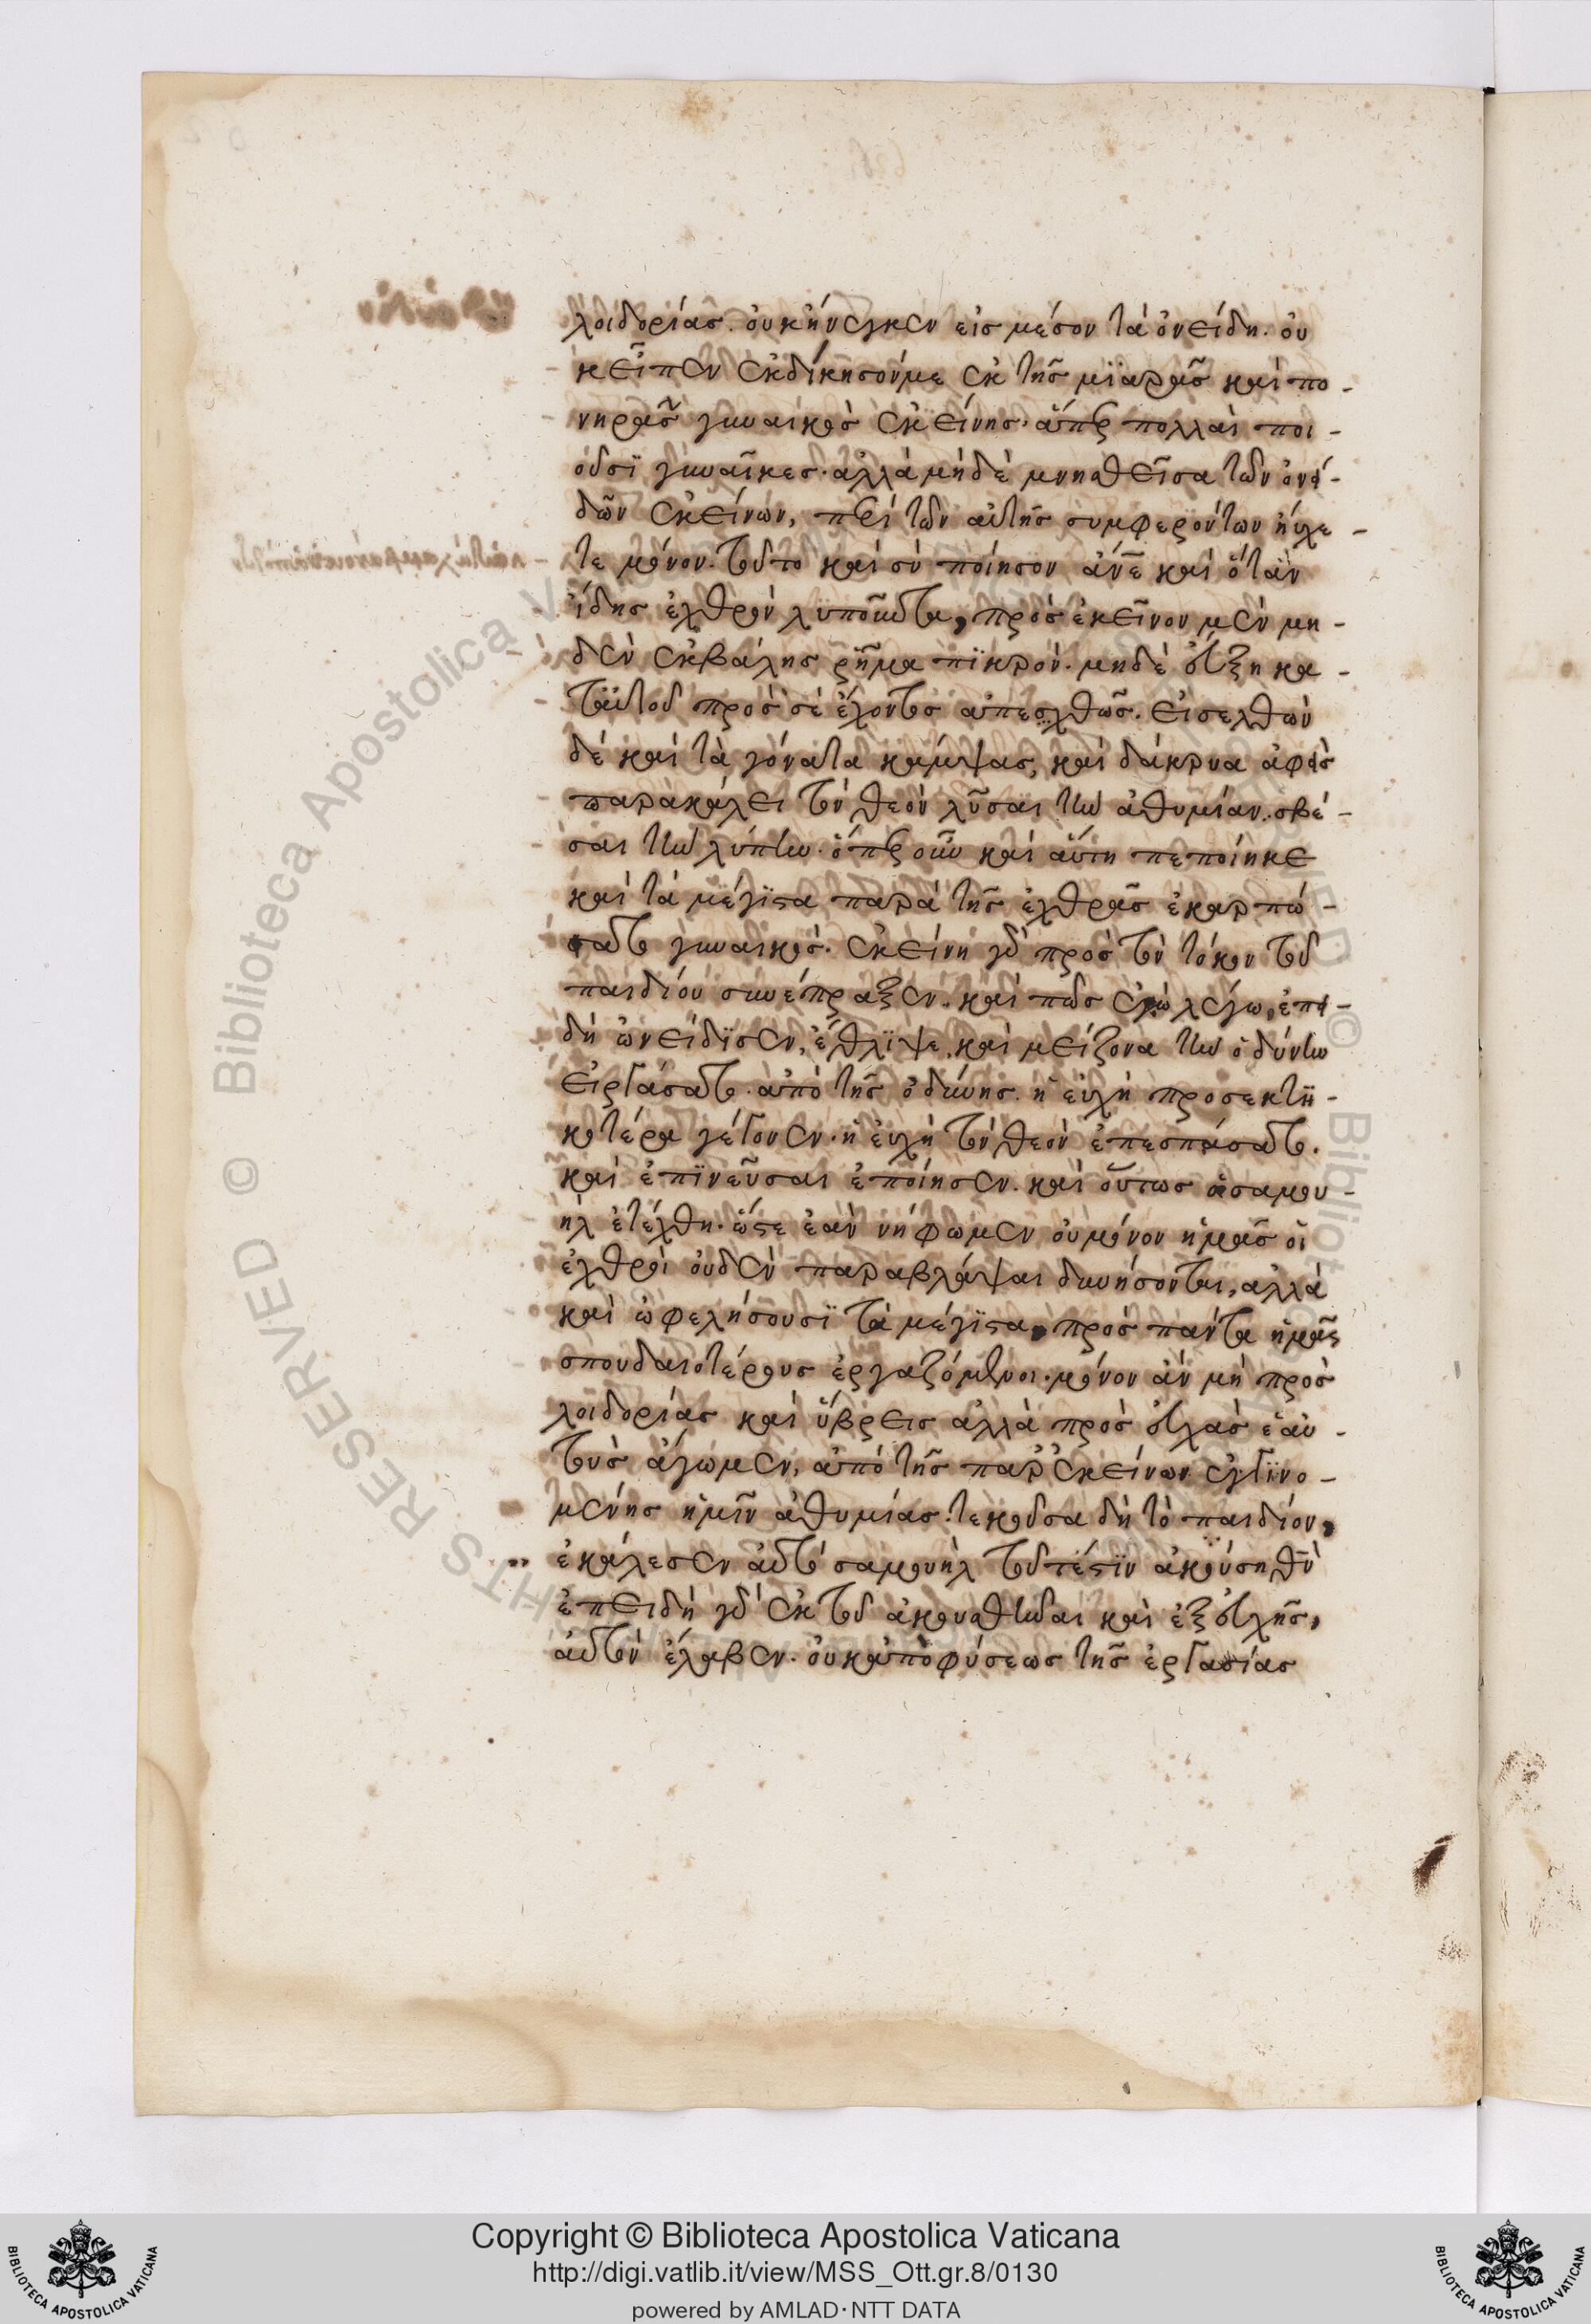 λοιδορίας. οὐκ ἤνεγκεν εἰς μέσον τὰ ὀνείδη. οὐ
κ εἶπεν ἐκδίκησόν με ἐκ τῆς μϊαρᾶς καὶ πο-
νηρᾶς γυναικὸς ἐκείνης. ἅπερ πολλαὶ ποι-
οῦσϊ γυναῖκες. ἀλλὰ μηδὲ μνησθεῖσα τῶν ὀνει-
δῶν ἐκείνων, περὶ τῶν αὐτῆς συμφερόντων ηὔχε-
το μόνον. τοῦτο καὶ σὺ ποίησον ἄνε καὶ ὅταν
ἴδης ἐχθρὸν λυποῦντα, πρὸς ἐκεῖνον μὲν μη-
δὲν ἐκβάλης ῥῆμα πϊκρόν. μηδὲ εὔξη κα-
τ αὐτοῦ πρὸς σὲ ἔχοντος ἀπεχθῶς. εἰσελθὼν
δὲ καὶ τὰ γόνατα κάμψας, καὶ δάκρυα ἀφεὶς
παρακάλει τὸν θεὸν λῦσαι τὴν ἀθυμίαν. σβέ-
σαι τὴν λύπην. ὅπερ οὖν καὶ αὕτη πεποίηκε
καὶ τὰ μέγϊστα παρὰ τῆς ἐχθρᾶς ἐκαρπώ-
σατο γυναικός. ἐκείνη γὰρ πρὸς τὸν τόκον τοῦ
παιδίου συνέπραξεν. καὶ πῶς ἐγὼ λέγω, ἐπει-
δὴ ὠνείδϊσεν, ἔθλϊψε, καὶ μείζονα τὴν ὀδύνην
εἰργάσατο. ἀπὸ τῆς ὀδύνης. ἡ εὐχὴ προσεκτϊ-
κοτέρα γέγονεν. ἡ εὐχὴ τὸν θεὸν ἐπεσπάσατο.
καὶ ἐπϊνεῦσαι ἐποίησεν. καὶ οὕτως ὁ σαμου-
ὴλ ἐτέχθη. ὥστε ἐὰν νήφωμεν οὐ μόνον ἡμᾶς οἱ
ἐχθροὶ οὐδὲν παραβλάψαι δυνήσονται, ἀλλὰ
καὶ ὠφελήσουσϊ τὰ μέγϊστα, πρὸς πάντα ἡμᾶς
σπουδαιοτέρους ἐργαζόμενοι. μόνον ἂν μὴ πρὸς
λοιδορίας καὶ ὕβρεις ἀλλὰ πρὸς εὐχὰς ἑαυ-
τοὺς ἄγωμεν, ἀπὸ τῆς παρ ἐκείνων ἐγγϊνο-
μένης ἡμῖν ἀθυμίας. τεκοῦσα δὴ τὸ παιδίον,
ἐκάλεσεν αὐτὸ σαμουὴλ τοῦτέστϊν ἀκούση θῦ
ἐπειδὴ γὰρ ἐκ τοῦ ἀκουσθῆναι καὶ ἐξ εὐχῆς,
αὐτὸν ἔλαβεν. οὐκ ἀπὸ φύσεως τῆς ἐργασίας
Copyright © Biblioteca Apostolica Vaticana
http://digi.vatlib.it/view/MSS_Ott.gr.8/0130
powered by AMLAD·NTT DATA